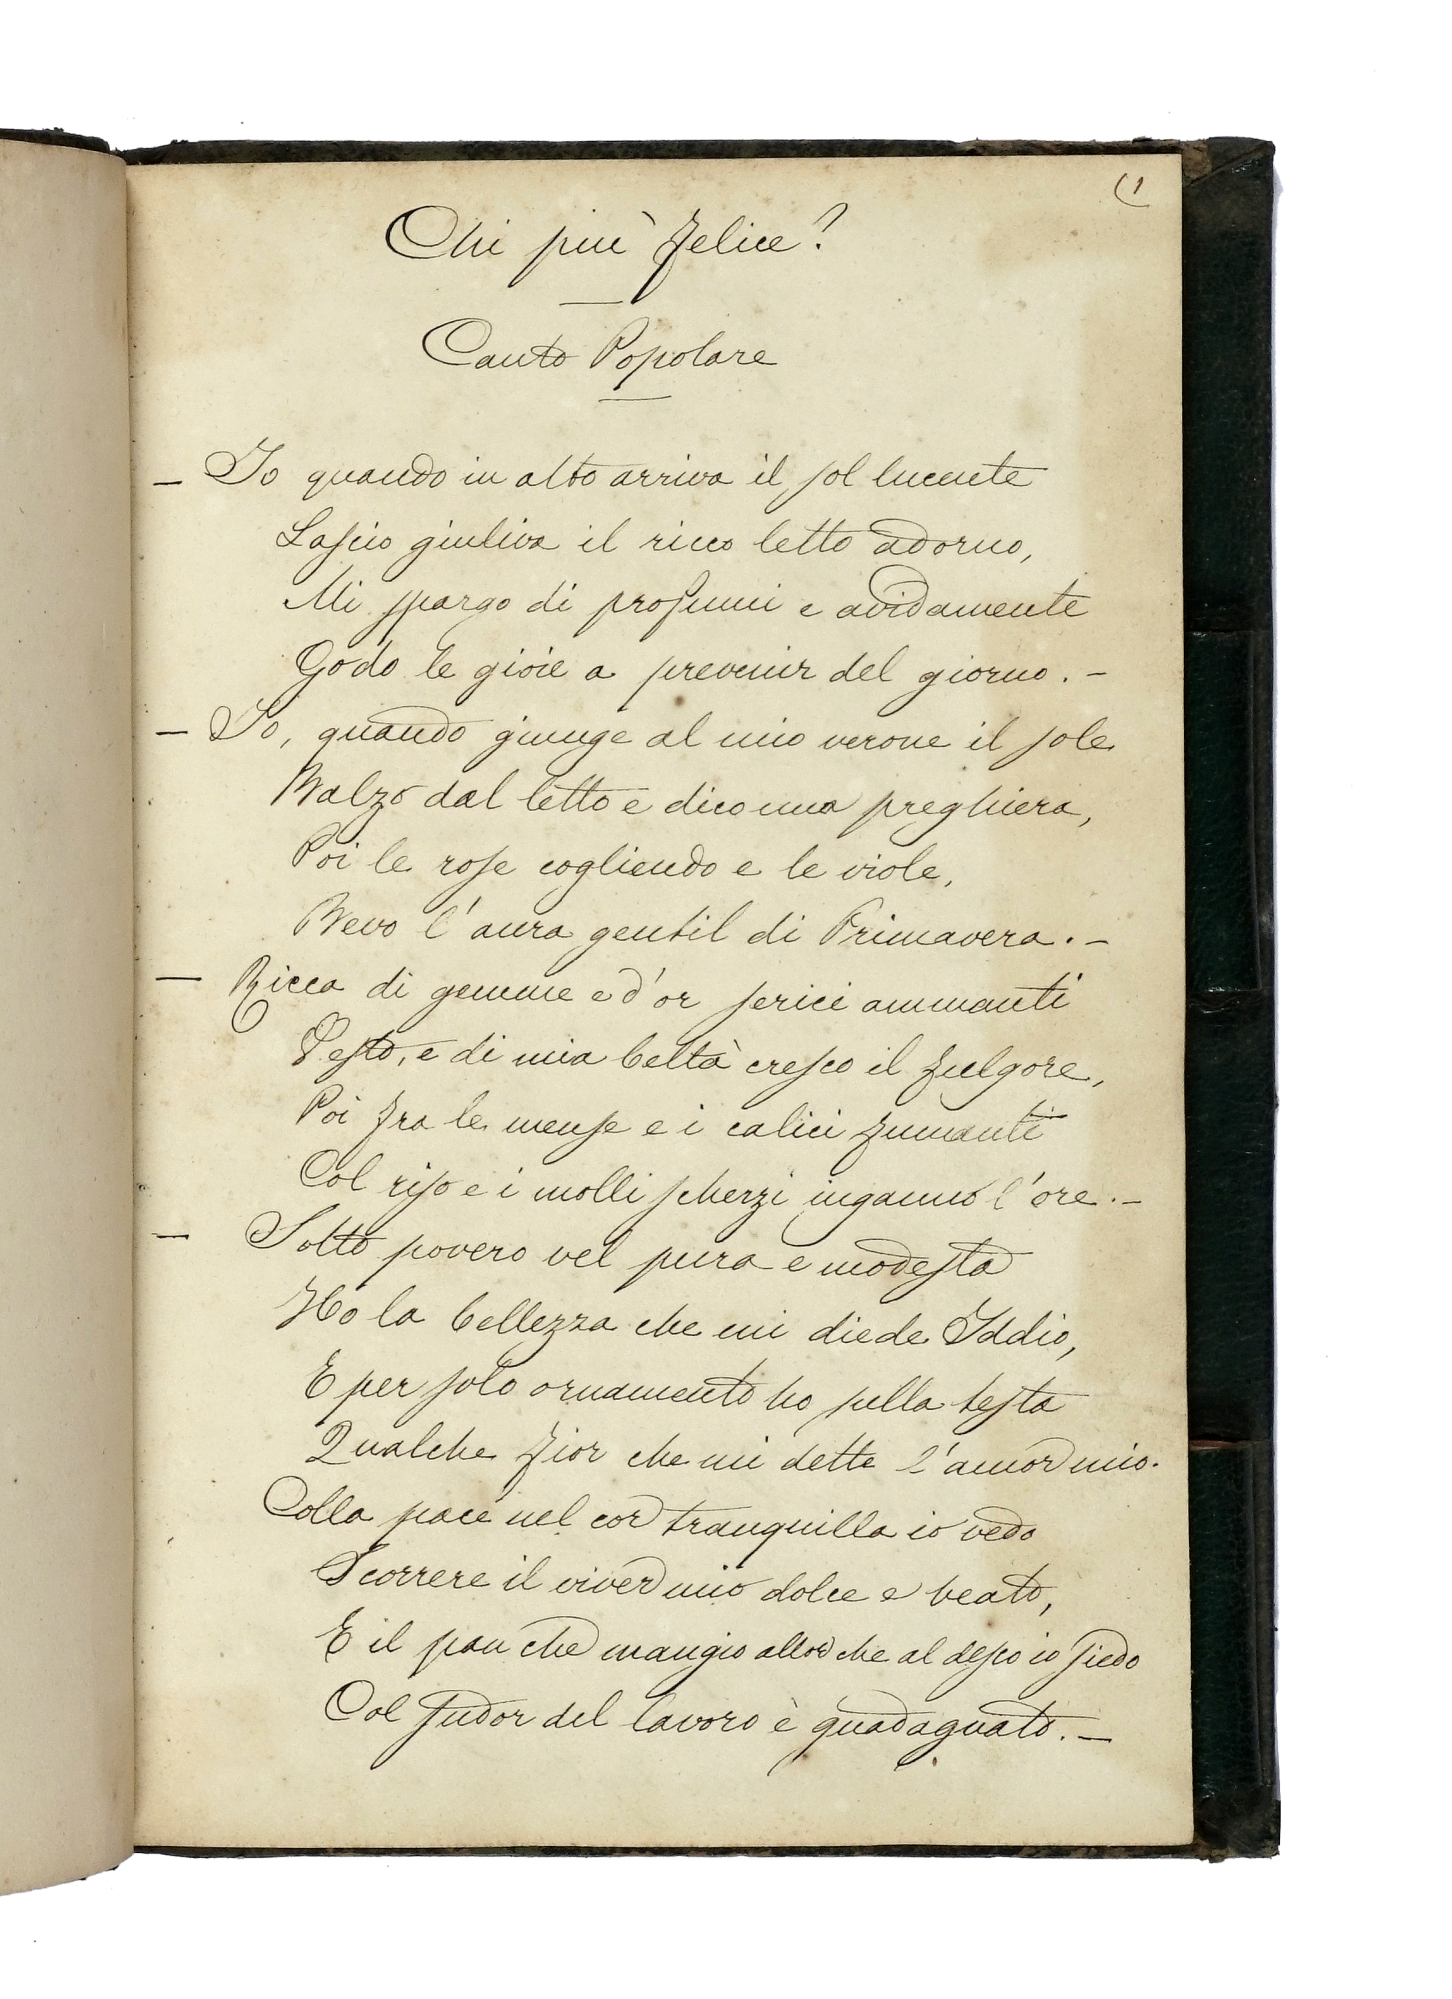 (1
Chi più felice?
Canto Popolare
– Io quando in alto arriva il sol lucente
Lascio giuliva il ricco letto adorno,
Mi spargo di profumi e avidamente
Godo le gioie a prevenir del giorno. –
– Io, quando giunge al mio verone il sole
Balzo dal letto e dico una preghiera,
Poi le rose cogliendo e le viole,
Bevo l'aura gentil di Primavera. –
– Ricca di gemme e d'or serici ammanti
Vesto, e di mia beltà cresco il fulgore,
Poi fra le mense e i calici fumanti
Col riso e i molli scherzi inganno l'ore. –
– Sotto povero vel pura e modesta
Ho la bellezza che mi diede Iddio,
E per solo ornamento ho sulla testa
Qualche fior che mi dette l'amor mio.
Colla pace nel cor tranquilla io vedo
Scorrere il viver mio dolce e beato,
E il pan che mangio allor che al desco io siedo
Col sudor del lavoro è guadagnato. –